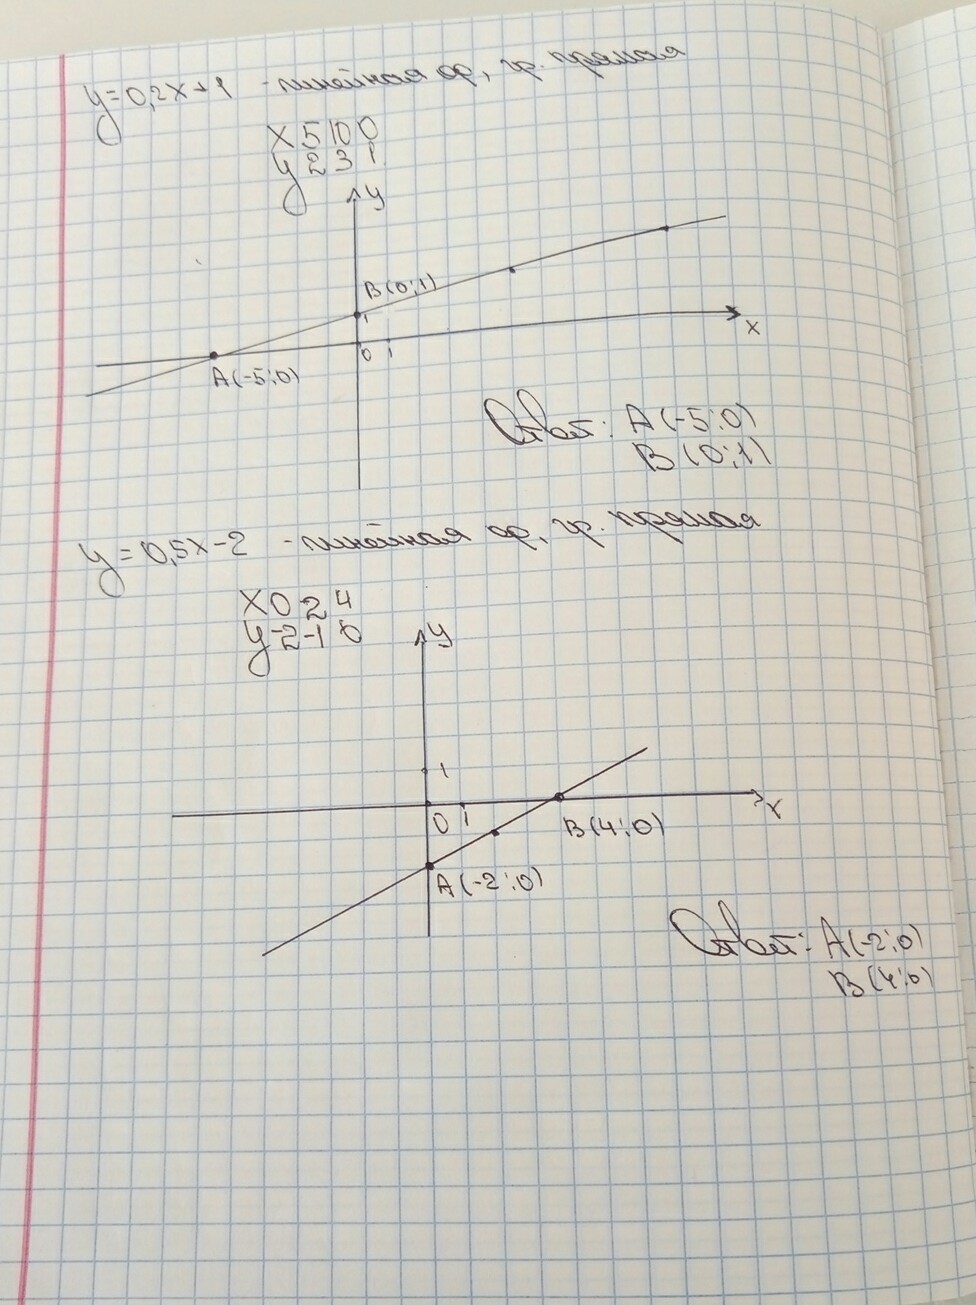 y=0,2x+1 -линейная ф, гр. прямая
x 5 10 0
y 2 3 1
y
B(0;1)
1
0 1
x
A(-5;0)
Ответ: A(-5;0)
B(0;1)
y=0,5x-2 -линейная ф, гр. прямая
x 0 2 4
y -2 -1 0
y
1
0 1
x
B(4;0)
A(-2;0)
Ответ: A(-2;0)
B(4;0)